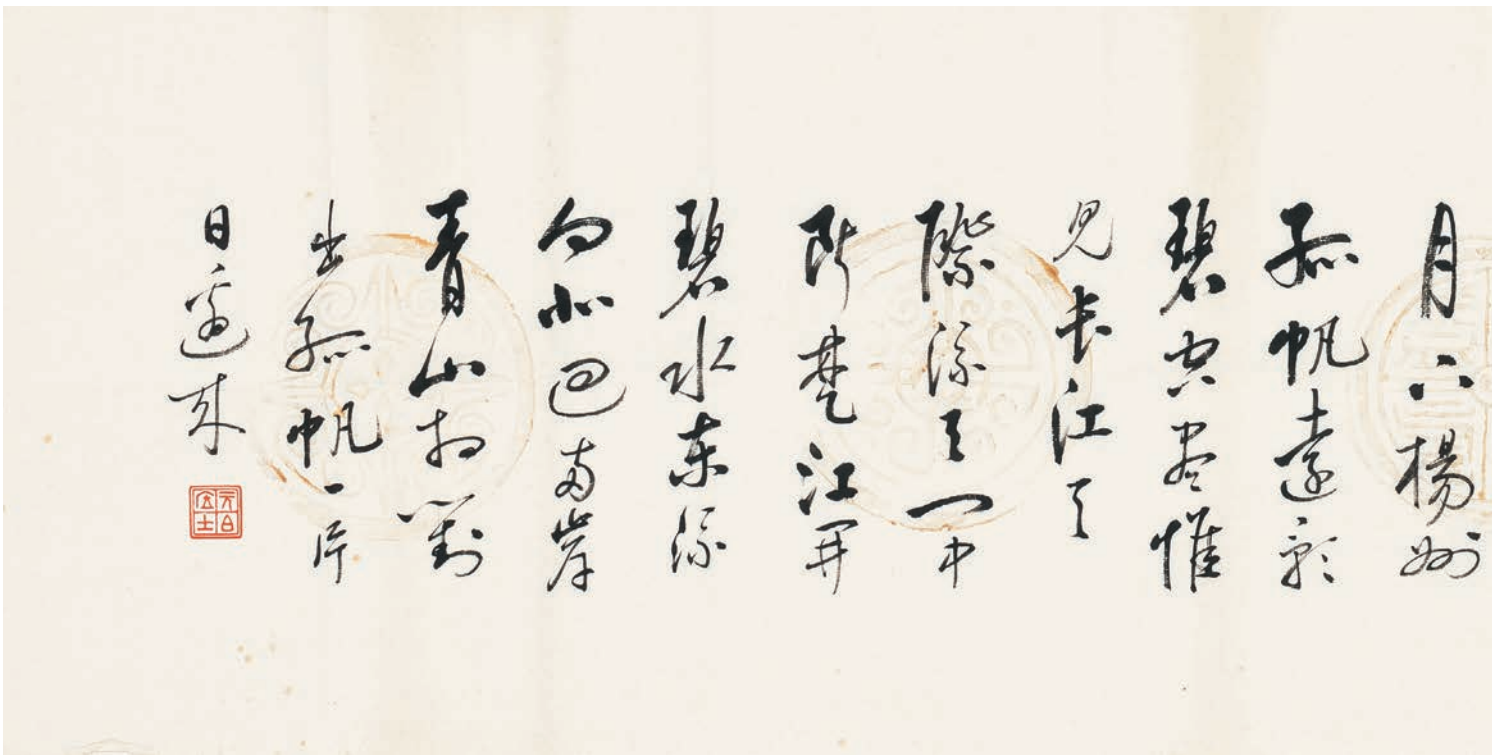 月下楊州
孤帆遠影
碧空盡惟
見長江天
際流天門中
斷楚江開
碧水東流
向北迴兩岸
青山相對
出孤帆一片
日邊來